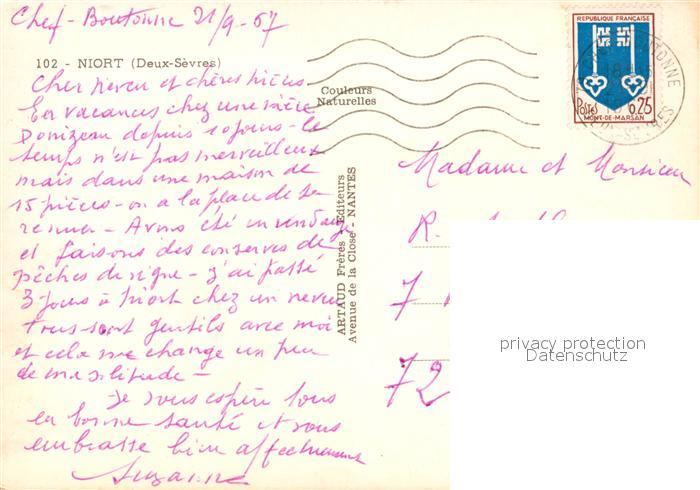 Chef-Boutonne 21/9-67
102 - NIORT (Deux-Sèvres)
Cher neveu et chères nièces
En vacances chez une nièce
Donizeau depuis 10 jours - le
temps n'est pas merveilleux
mais dans une maison de
15 pièces - on a la place de se
remuer - Avons été en vendange
et faisons des conserves de
pêches de vigne - j'ai passé
3 jours à Niort chez un neveu
tous sont gentils avec moi
et cela me change un peu
de ma solitude -
Je vous espère tous
en bonne santé et vous
embrasse bien affectueusement
Suzanne
Couleurs
Naturelles
ARTAUD Frères - Editeurs
Avenue de la Close - NANTES
REPUBLIQUE FRANÇAISE
POSTES 0,25
MONT-DE-MARSAN
DEUX-SEVRES
Madame et Monsieur
R.
7
72
privacy protection
Datenschutz